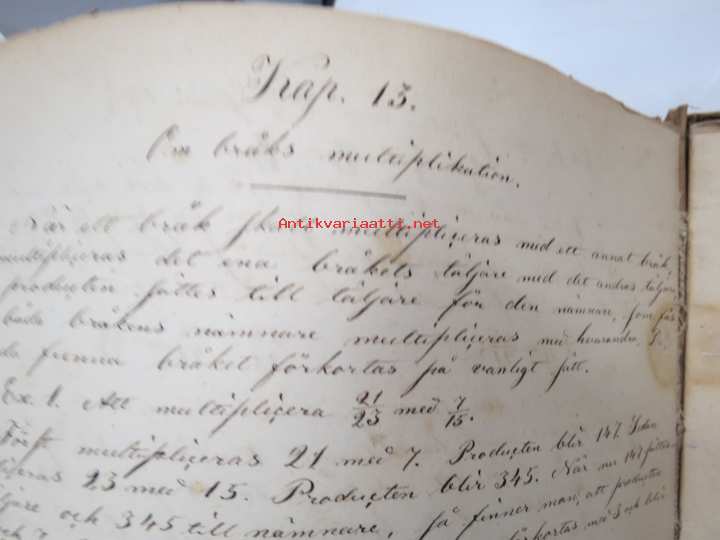 Kap. 13.
Om bråks multiplikation.
Antikvariaatti.net
När ett bråk skall multipliceras med ett annat bråk
multipliceras det ena bråkets täljare med det andras täljare
producten sättes till täljare för den nämnare, som fås
båda bråkens nämnare multipliceras med hvarandra.
da funna bråket förkortas på vanligt sätt.
Ex. 1. Att multiplicera 21/23 med 7/15.
Först multipliceras 21 med 7. Producten blir 147. Sedan
pliceras 23 med 15. Producten blir 345. När nu 147 sättes
täljare och 345 till nämnare, så finner man, att producten
förkortas med 3 och blir